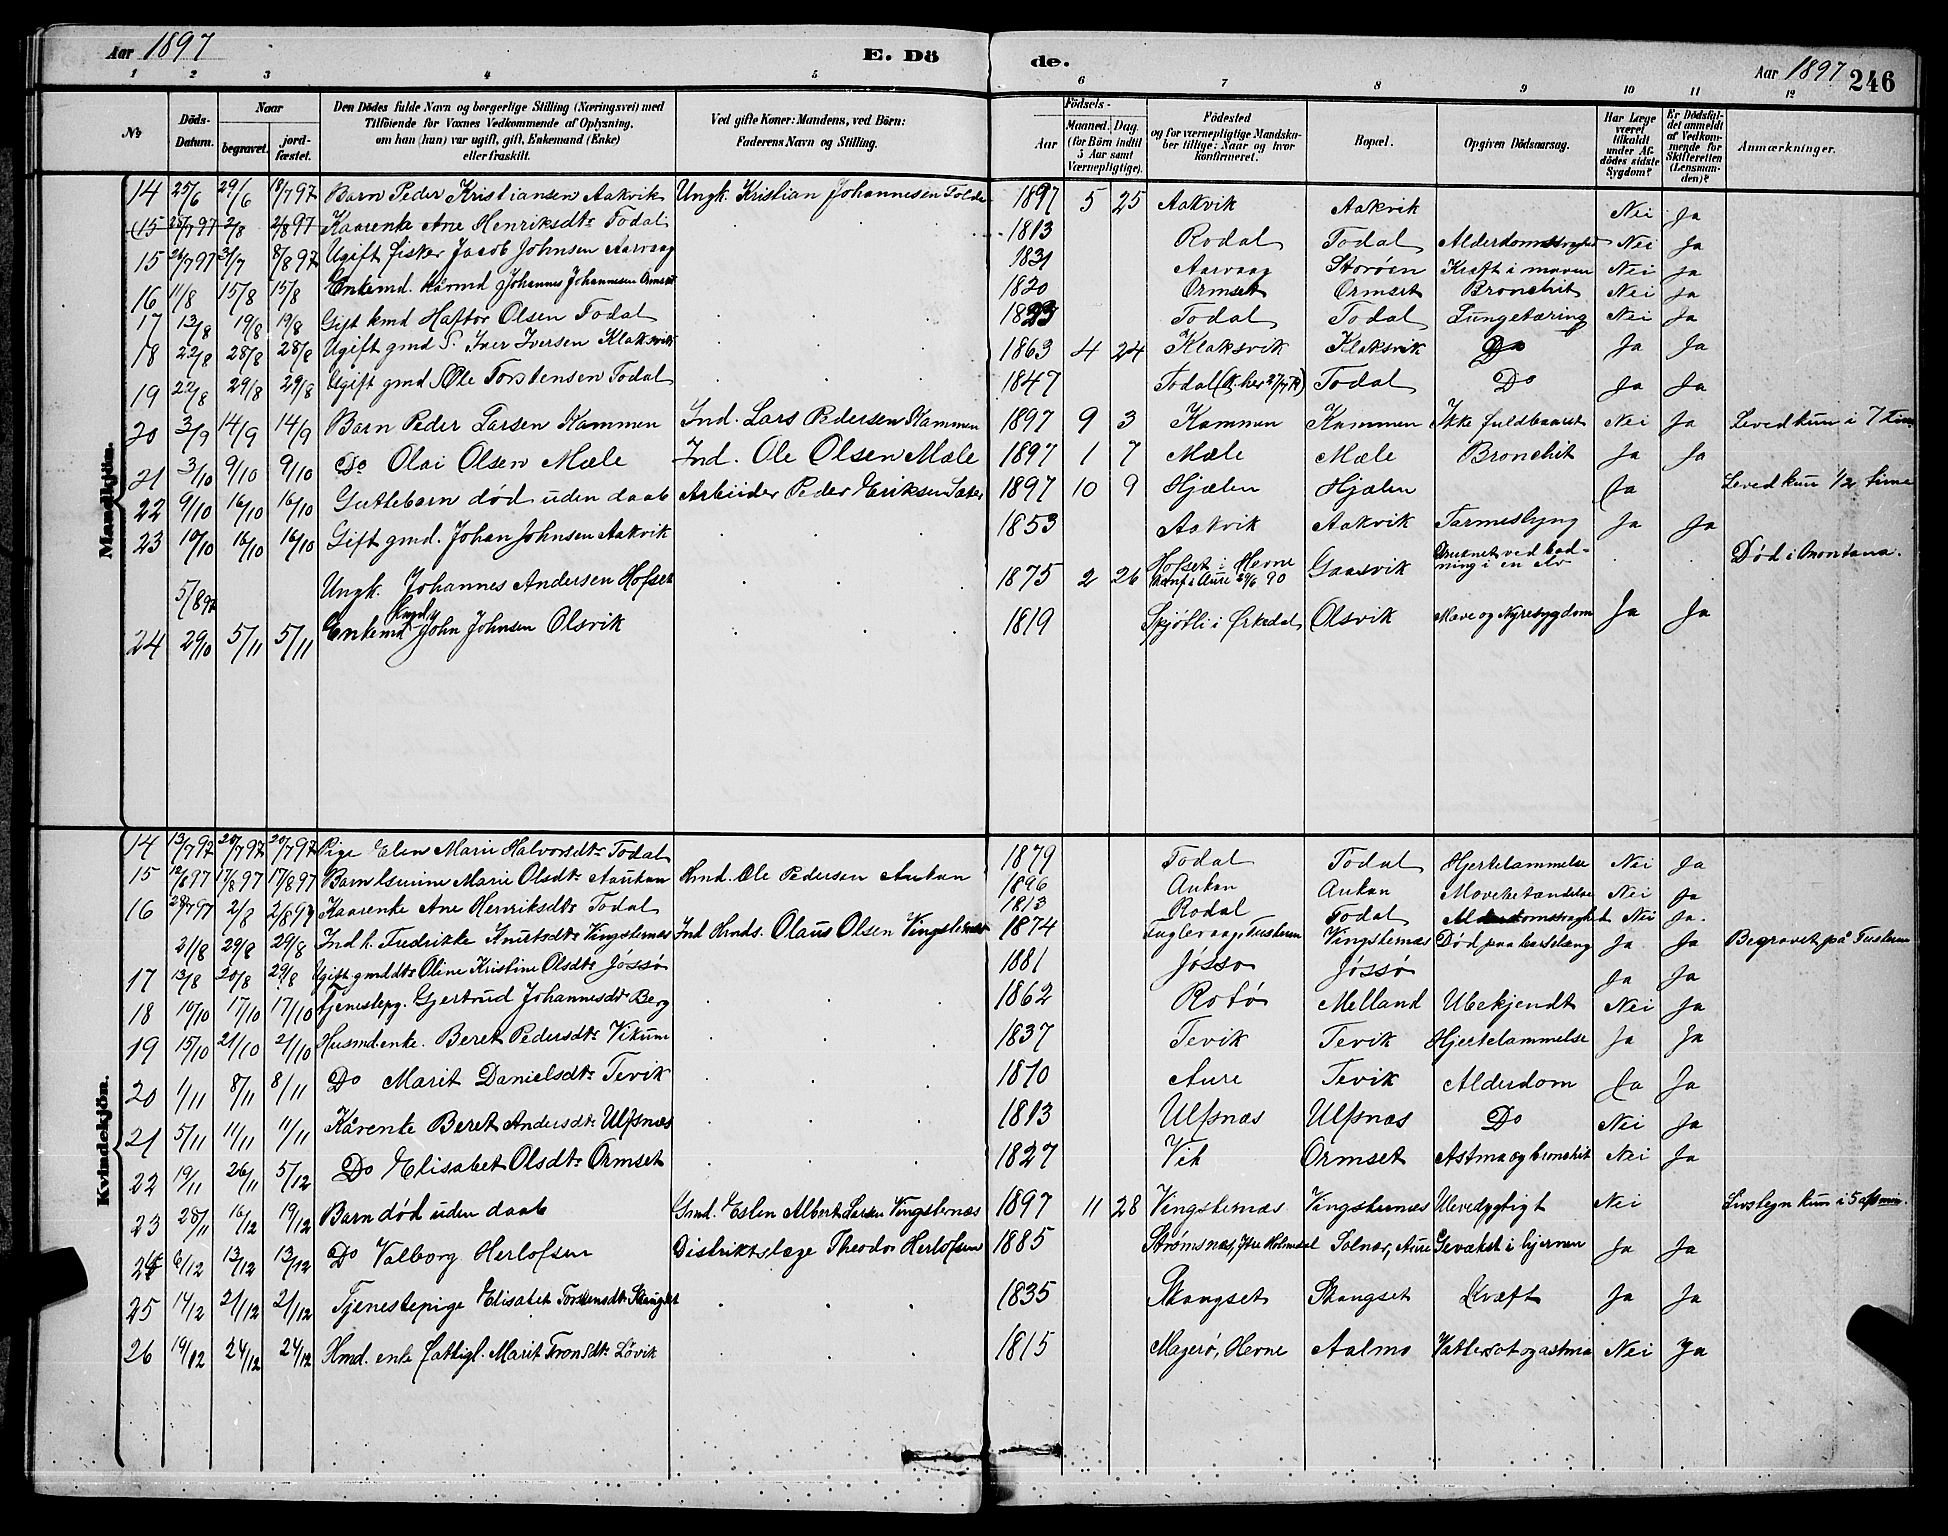 Aar 1897 E. Dö de. Aar 1897 246
1 2 3 4 5 6 7 8 9 10 11 12
№ Döds-Datum. Naar begravet. jordfæstet. Den Dödes fulde Navn og borgerlige Stilling (Næringsvei) med Tilföiende for Voxnes Vedkommende af Oplysning, om han (hun) var ugift, gift, Enkemand (Enke) eller fraskilt. Ved gifte Koner: Mandens, ved Börn: Faderens Navn og Stilling. Födsels- Aar Maaned. Dag. (for Börn indtil 5 Aar samt Værnepligtige). Födested og for værnepligtige Mandskaber tillige: Naar og hvor konfirmeret. Bopæl. Opgiven Dödsaarsag. Har Læge været tilkaldt under Afdödes sidste Sygdom? Er Dödsfaldet anmeldt af Vedkommende for Skifteretten (Lensmanden)? Anmærkninger.
Mandkjön.
14 25/6 29/6 18/7 97 Barn Peder Kristiansen Aakvik Ungk. Kristian Johannesen Tolde 1897 5 25 Aakvik Aakvik Nei Ja
(15 28/7 97 2/8 2/8 97 Kaarenke Ane Henriksdtr Todal 1813 Rodal Todal Nei Ja
15 26/7 97 31/7 8/8 97 Ugift fisker Jacob Johnsen Aarvaag 1831 Aarvaag Storöen Kræft i maven Nei Ja
16 11/8 15/8 15/8 Enkemd. Kårmd Johannes Johannesen Ormset 1820 Ormset Ormset Bronchit Nei Ja
17 13/8 19/8 19/8 Gift kmd Haftor Olsen Todal 1823 Todal Todal Lungetæring Nei Ja
18 22/8 28/8 28/8 Ugift gmd S. Iver Iversen Klaksvik 1863 4 24 Klaksvik Klaksvik Do Ja Ja
19 22/8 29/8 29/8 Ugift gmd Ole Torstensen Todal 1847 Todal Todal Do Ja Ja
20 3/9 14/9 14/9 Barn Peder Larsen Kammen Ind. Lars Pedersen Kammen 1897 9 3 Kammen Kammen Ikke fuldbaaret Nei Ja Leved kun i 7 tim
21 3/10 9/10 9/10 Do Olai Olsen Mæle Ind. Ole Olsen Mæle 1897 1 7 Mæle Mæle Bronchit Ja Ja
22 9/10 16/10 16/10 Guttebarn död uden daab Arbeider Peder Eriksen Sæter 1897 10 9 Hjælen Hjælen Ja Leved kun 1/2 time
23 10/10 16/10 16/10 Gift gmd. Johan Johnsen Aakvik 1853 Aakvik Aakvik Tarmeslyng Ja Ja
5/8 97 Ungk. Johannes Andersen Hofset 1875 2 26 Hofset i Hevne Konf i Aure 29/6 90 Gaasvik Druknet ved badning i en elv Död i Montana.
24 29/10 5/11 5/11 Enkemd Kmd John Johnsen Olsvik 1819 Skjötli i Ørkedal Olsvik Mave og Nyresygdom Ja Ja
Kvindekjön.
14 13/7 97 20/7 97 20/7 97 Pige Elen Marie Halvorsdtr Todal 1879 Todal Todal Hjertelammelse Nei Ja
15 12/8 97 17/8 97 17/8 97 Barn Marie Olsdtr Aukan Hmd. Ole Pedersen Aukan 1896 Aukan Aukan Nei Ja
16 28/7 97 2/8 2/8 97 Kaarenke Ane Henriksdtr Todal 1813 Rodal Todal Alderdomssvaghet Nei Ja.
21/8 29/8 29/8 Ind k. Fredrikke Knutsdtr Vingsternæs Ind Hmds. Olaus Olsen Vingsternæs 1874 Fuglevaag, Tusteren Vingsternæs Död paa barselseng Ja Ja Begravet på Tusteren
17 13/8 20/8 29/8 Ugift gmddtr Oline Kristine Olsdtr Jössö 1881 Jössö Jössö Ja Ja
18 10/10 17/10 17/10 Tjenestepg. Gjertrud Johannesdtr Berg 1862 Rotö Melland Ubekjendt Nei Ja
19 15/10 21/10 21/10 Husmd.enke. Beret Pedersdtr Vikum 1837 Tevik Tevik Hjertelammelse Ja Ja
20 1/11 8/11 8/11 Do Marit Danielsdtr Tevik 1810 Aure Tevik Alderdom Ja Ja
21 5/11 11/11 11/11 Kårenke Beret Andersdtr Ulfsnæs 1813 Ulfsnæs Ulfsnæs Do Nei Ja
22 19/11 26/11 5/12 Do Elisabet Olsdtr Ormset 1827 Vik Ormset Astma og bronchit Nei Ja
23 28/11 16/12 19/12 Barn död uden daab Gmd. Eslen Albert Larsen Vingsternæs 1897 11 28 Vingsternæs Vingsternæs Ulevedygtigt Nei Livstegn kun i 5 min.
24 6/12 13/12 13/12 Do Valborg Herlofsen Distriktslæge Theodor Herlofsen 1885 Strömsnæs, Holmedal Solnør, Aure Gevækst i hjernen Ja Ja
25 14/12 21/12 21/12 Tjenestepige Elisabet Torstensdtr Skangset 1835 Skangset Skangset Kræft Ja Ja
26 19/12 24/12 24/12 Hmd. enke fattigl. Marit Tronsdtr Lövik 1815 Magerö, Hevne Aalmo Vattersot og astma Nei Ja